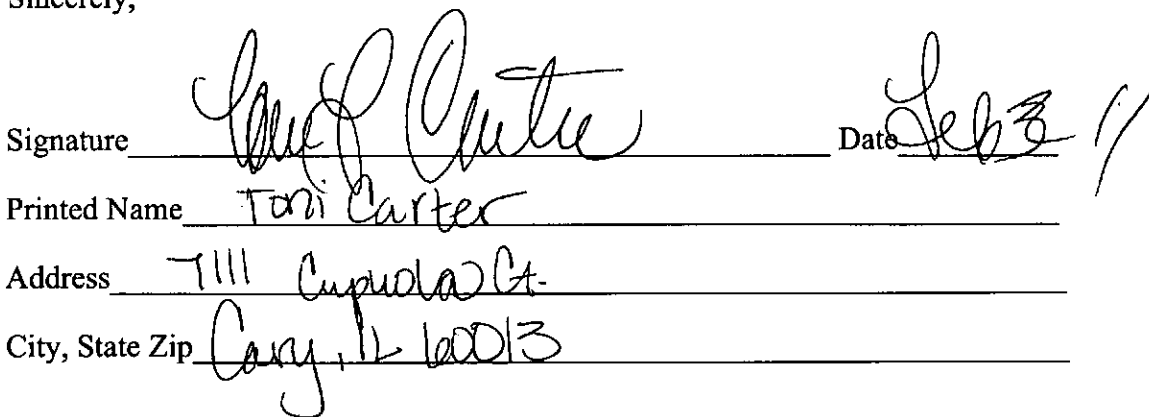 Sincerely,
Signature Toni L Carter Date Feb 3 11
Printed Name Toni Carter
Address 7111 Cupuola Ct.
City, State Zip Cary, IL 60013